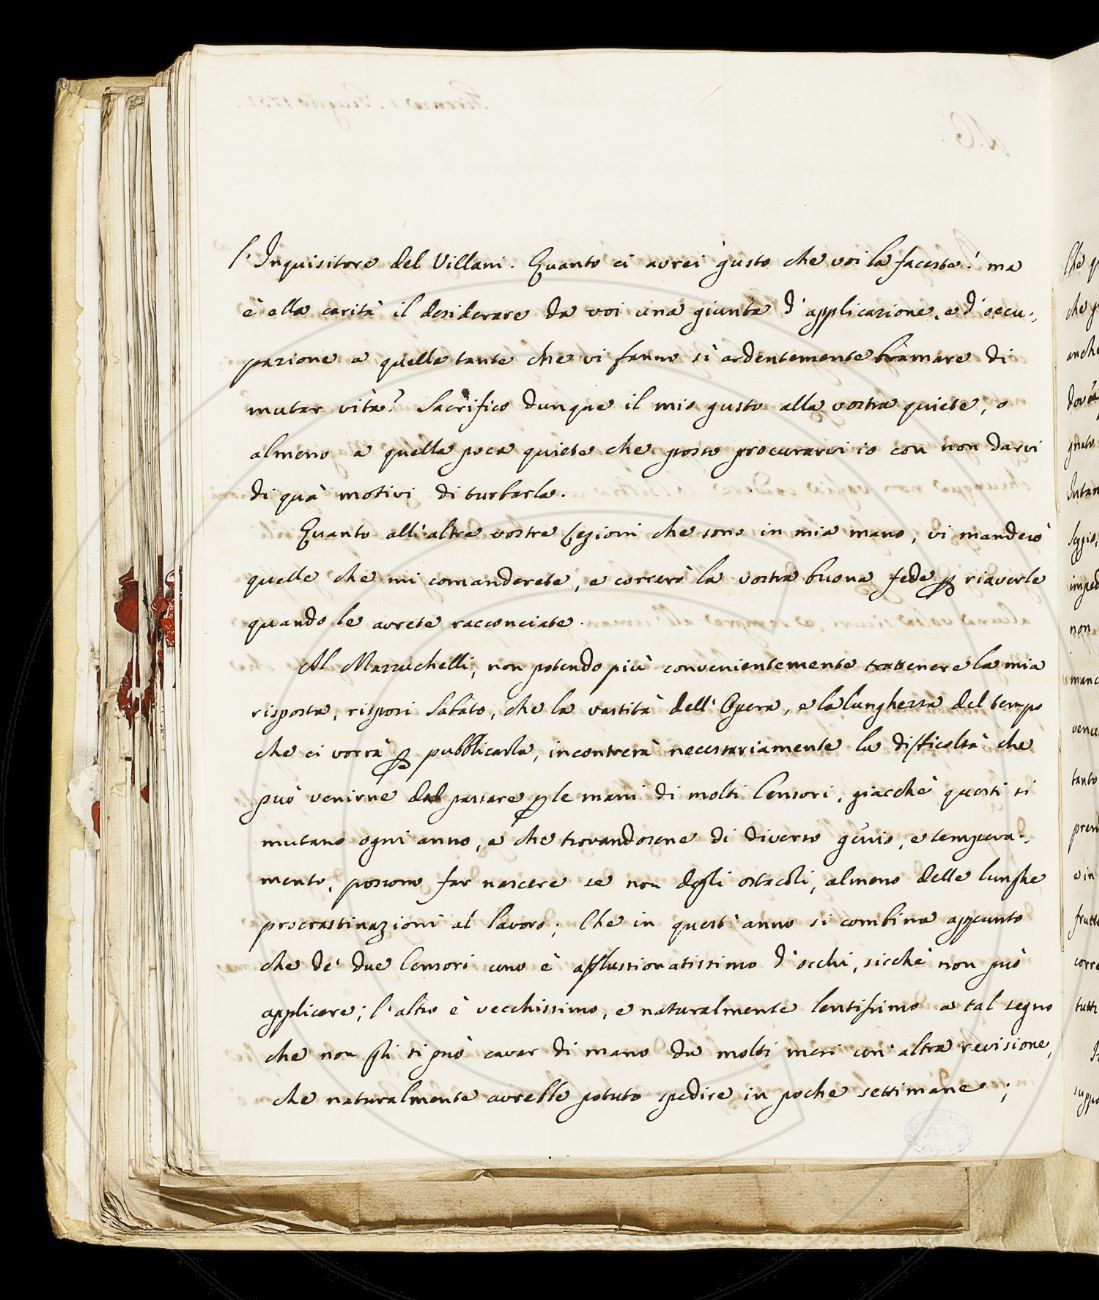 l'Inquisitore del Villani. Quanto ci avrei gusto che voi la faceste! ma
è ella carità il desiderare da voi una giunta d'applicazione, e d'occu-
pazione a quelle tante che vi fanno sì ardentemente bramare di
mutar vita? Sacrifico dunque il mio gusto alla vostra quiete, o
almeno a quella poca quiete che posso procurarvi io con non darvi
di quà motivi di turbarla.
Quanto all'altre vostre Lezioni che sono in mia mano, vi manderò
quelle che mi comanderete, e correrà la vostra buona fede riaverle
quando le avrete racconciate.
Al Mazzuchelli, non potendo più convenientemente trattenere la mia
risposta, risposi Sabato, che la vastità dell'Opera, e la lunghezza del tempo
che ci vorrà pubblicarla, incontrerà necessariamente la difficoltà che
può venirne dal passare le mani di molti Censori, giacchè questi si
mutano ogni anno, e che trovandosene di diverso genio, e tempera-
mento, possono far nascere se non degli ostacoli, almeno delle lunghe
procrastinazioni al lavoro; Che in quest'anno si combina appunto
che de' due Censori uno è afflussionatissimo d'occhi, sicchè non può
applicare; l'altro è vecchissimo, e naturalmente lentissimo a tal segno
che non gli si può cavar di mano da molti mesi un'altra revisione,
che naturalmente avrebbe potuto spedire in poche settimane;